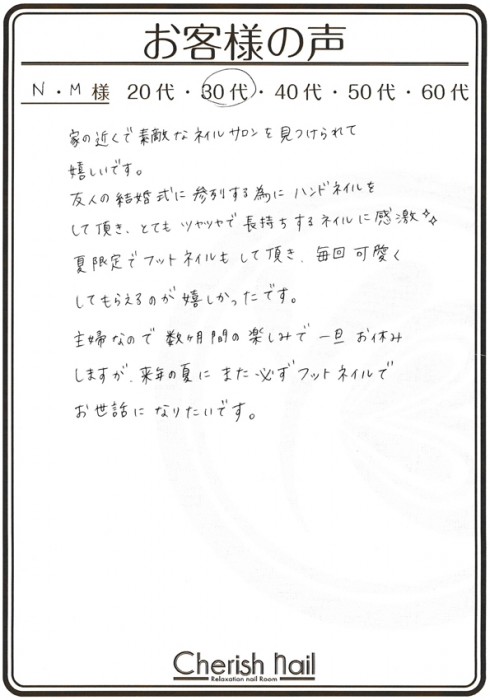 お客様の声
N・M 様 20代・30代・40代・50代・60代
家の近くで素敵なネイルサロンを見つけられて
嬉しいです。
友人の結婚式に参列する為にハンドネイルを
して頂き、とてもツヤツヤで長持ちするネイルに感激✨
夏限定でフットネイルもして頂き、毎回可愛く
してもらえるのが嬉しかったです。
主婦なので数ヶ月間の楽しみで一旦お休み
しますが、来年の夏にまた必ずフットネイルで
お世話になりたいです。
Cherish nail
Relaxation nail Room